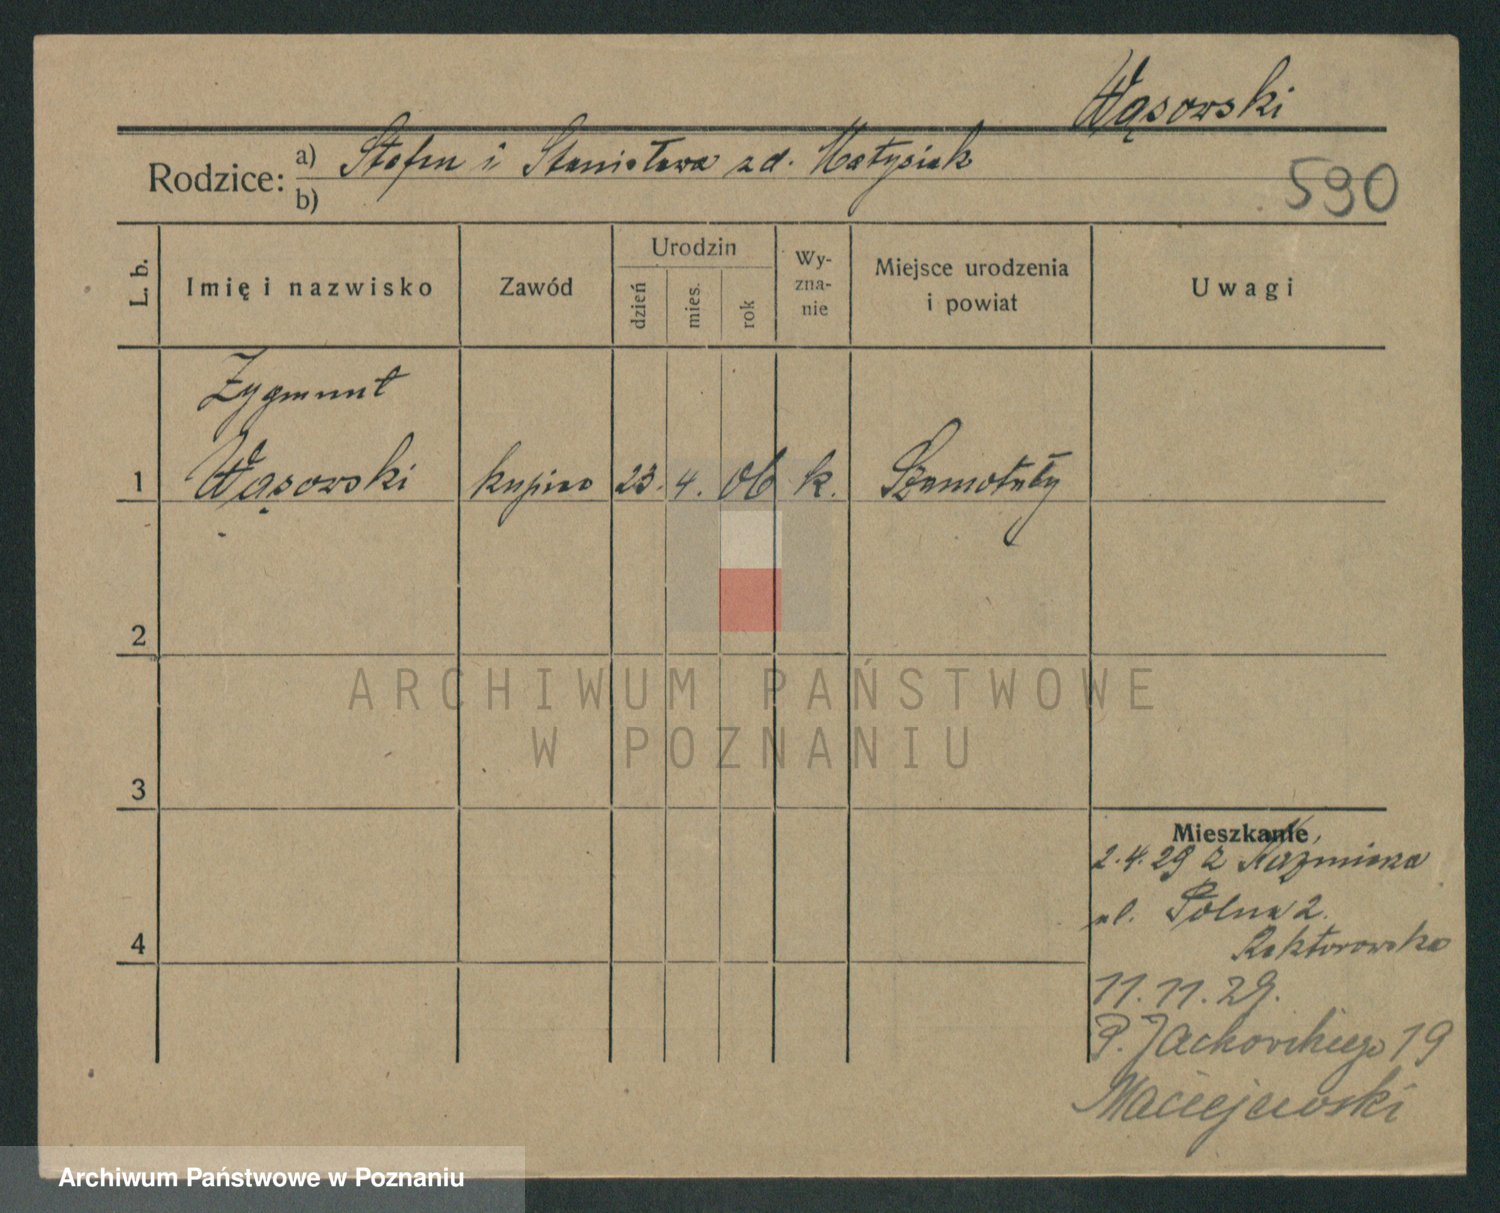 Wąsowski
Rodzice: a) Stefan i Stanisława zd. Matysiak
b)
590
L. b.
Imię i nazwisko
Zawód
Urodzin
dzień
mies.
rok
Wy-
zna-
nie
Miejsce urodzenia
i powiat
Uwagi
Zygmunt
1 Wąsowski kupiec 23. 4. 06 k. Szamotuły
2
ARCHIWUM PAŃSTWOWE
W POZNANIU
3
Mieszkanie
2.4.29 z Kaźmierza
4
ul. Polna 2.
Rektorowska
11.11.29.
P. Jackowskiego 19
Maciejewski
Archiwum Państwowe w Poznaniu